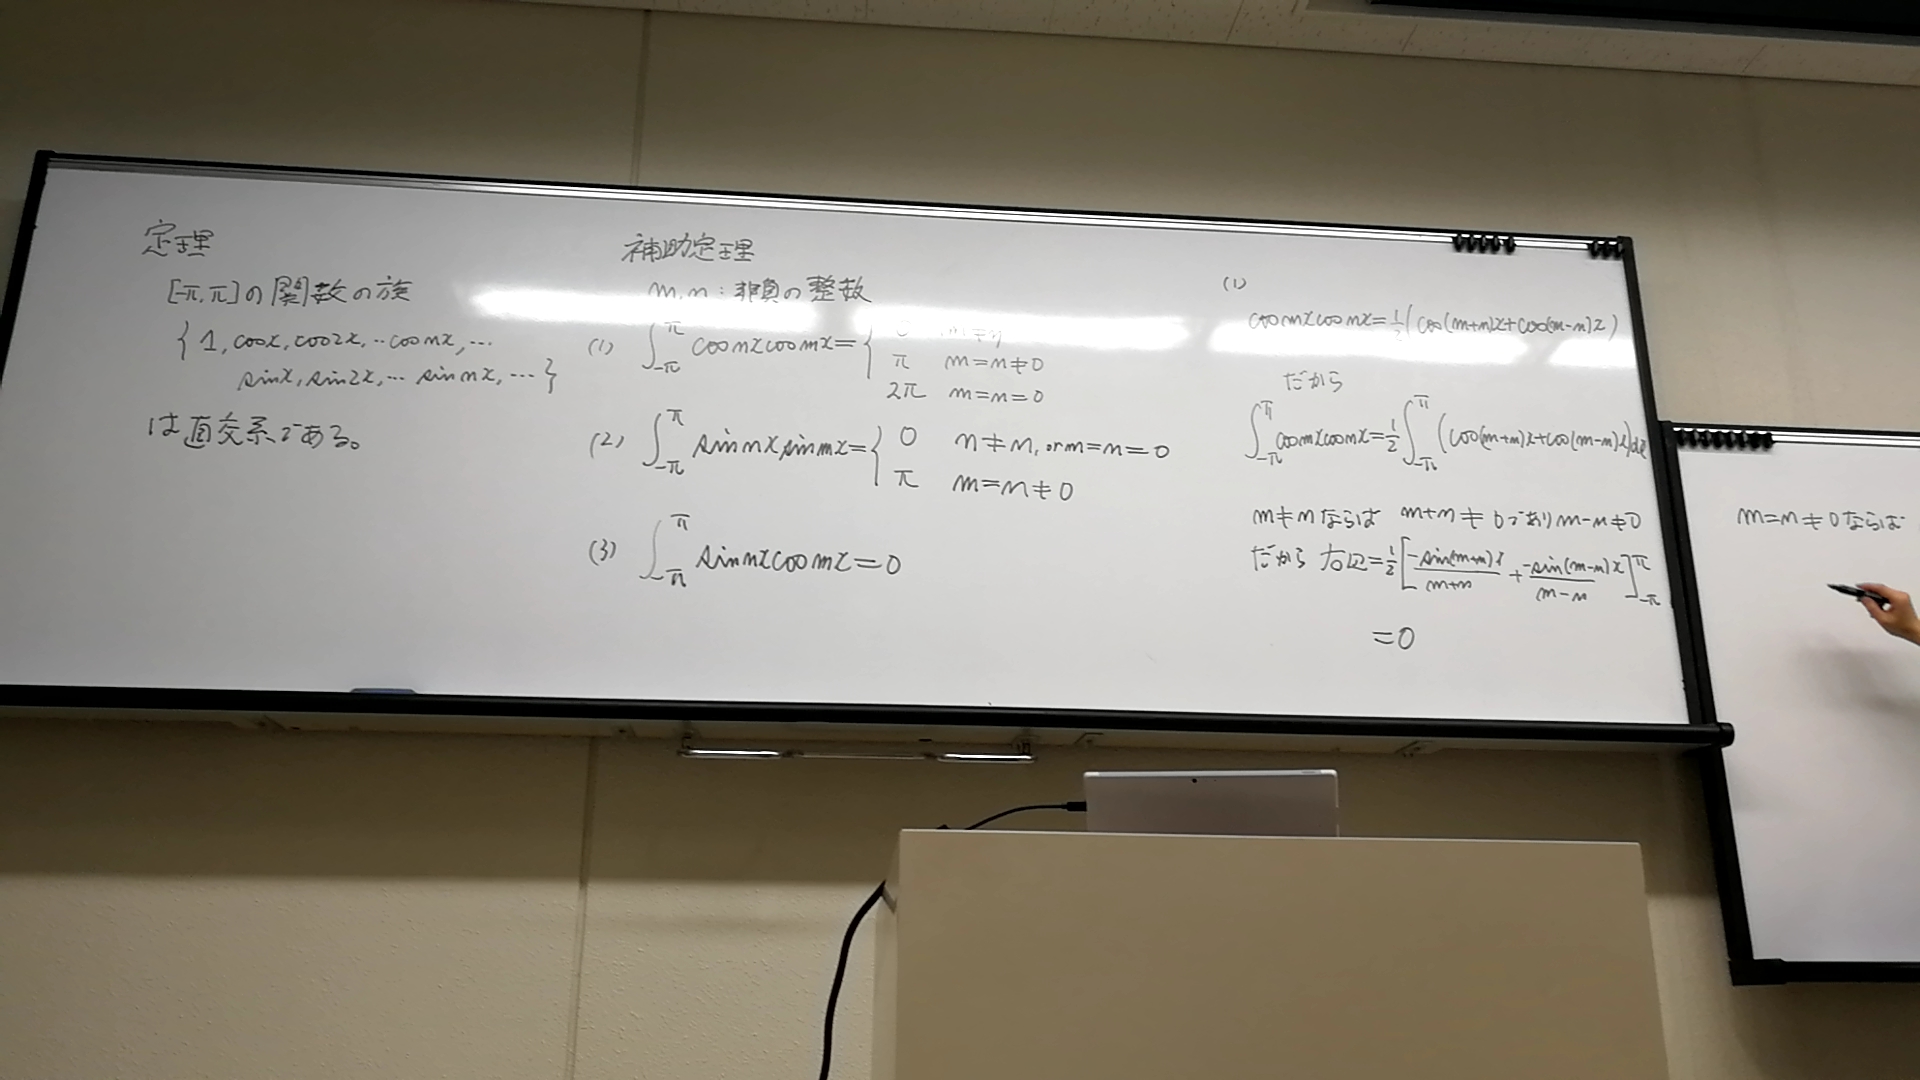 定理
[-π,π]の関数の族
{ 1, cosx, cos2x, ‥cosnx, …
sinx, sin2x, … sin nx, … }
は直交系である。
補助定理
m,n : 非負の整数
(1) ∫_{-π}^{π} cosnx cosmx = { 0 m≠n
π m=n≠0
2π m=n=0
(2) ∫_{-π}^{π} sinnx sinmx = { 0 n≠m, or m=n=0
π m=n≠0
(3) ∫_{-π}^{π} sinnx cosmx = 0
(1)
cosmx cosnx = 1/2 ( cos(m+n)x + cos(m-n)x )
だから
∫_{-π}^{π} cosmx cosnx = 1/2 ∫_{-π}^{π} (cos(m+n)x + cos(m-n)x)dx
m≠n ならば m+n≠0であり m-n≠0
だから 右辺 = 1/2 [ -sin(m+n)x / m+n + -sin(m-n)x / m-n ]_{-π}^{π}
= 0
m=n≠0 ならば